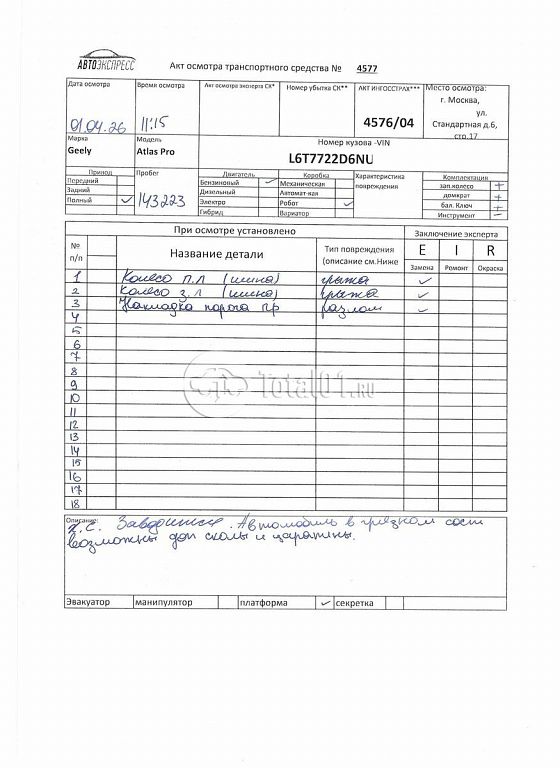 АВТОЭКСПРЕСС
Акт осмотра транспортного средства № 4577
Дата осмотра
Время осмотра
Акт осмотра эксперта СК*
Номер убытка СК**
АКТ ИНГОССТРАХ***
Место осмотра:
г. Москва,
ул.
Стандартная д.6,
стр.17
01.04.26
11:15
4576/04
Марка
Модель
Номер кузова -VIN
Geely
Atlas Pro
L6T7722D6NU
Привод
Пробег
Двигатель
Коробка
Характеристика
повреждения
Комплектация
Передний
Бензиновый ✓
Механическая
зап.колесо +
Задний
Дизельный
Автомат-кая
домкрат +
Полный ✓
143223
Электро
Робот ✓
бал. Ключ +
Гибрид
Вариатор
Инструмент −
При осмотре установлено
Заключение эксперта
№
п/п
Название детали
Тип повреждения
(описание см.Ниже
E I R
Замена Ремонт Окраска
1 Колесо п.л (шина) грыжа ✓
2 Колесо з.л (шина) грыжа ✓
3 Накладка порога пр разлом ✓
4
5
6
7
8
9
10
11
12
13
14
15
16
17
18
Total01.RU
Описание:
Автомобиль в грязном сост
возможны доп сколы и царапины.
Эвакуатор манипулятор платформа ✓ секретка